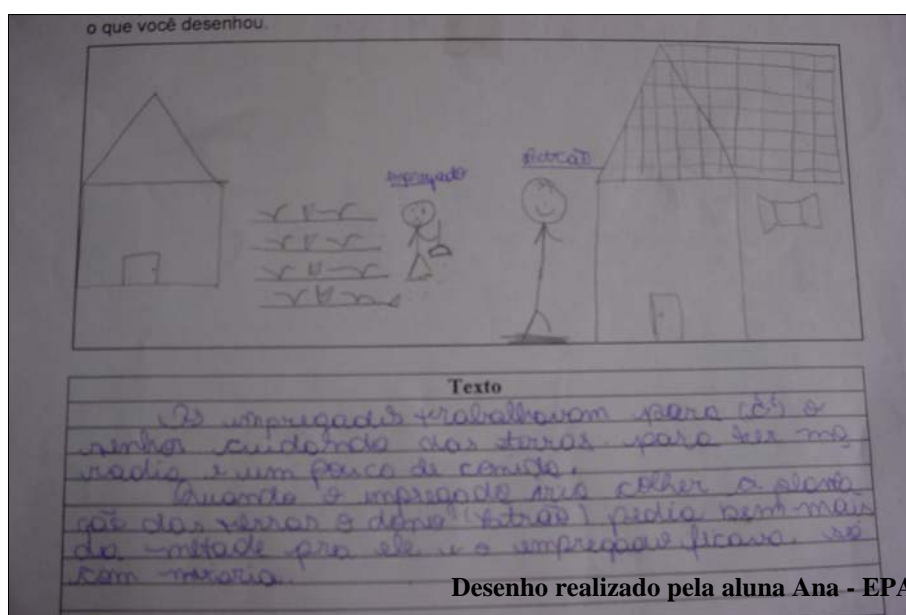 o que você desenhou.
empregado
patrão
Texto
Os empregados trabalhavam para o
senhor cuidando das terras para ter mo
radia e um pouco de comida.
Quando o empregado iria colher a planta
ção das terras o dono (patrão) pedia bem mais
da metade pra ele e o empregado ficava só
com
Desenho realizado pela aluna Ana - EPA